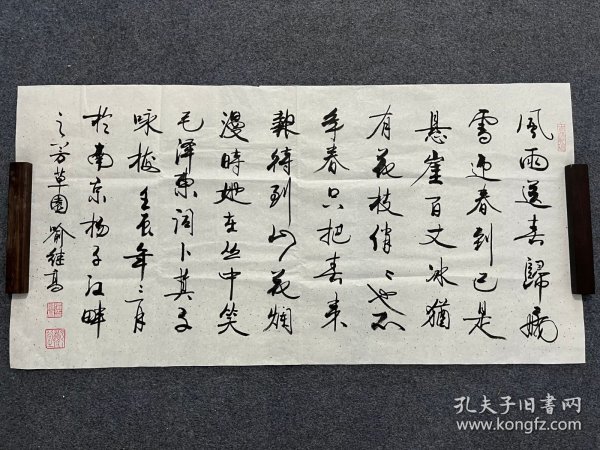 風雨送春歸飛
雪迎春到已是
懸崖百丈冰猶
有花枝俏俏也不
争春只把春来
報待到山花爛
漫時她在丛中笑
毛澤東词卜算子
咏梅壬辰年三月
於南京杨子江畔
之芳草園喻继高
孔夫子旧書网
www.kongfz.com